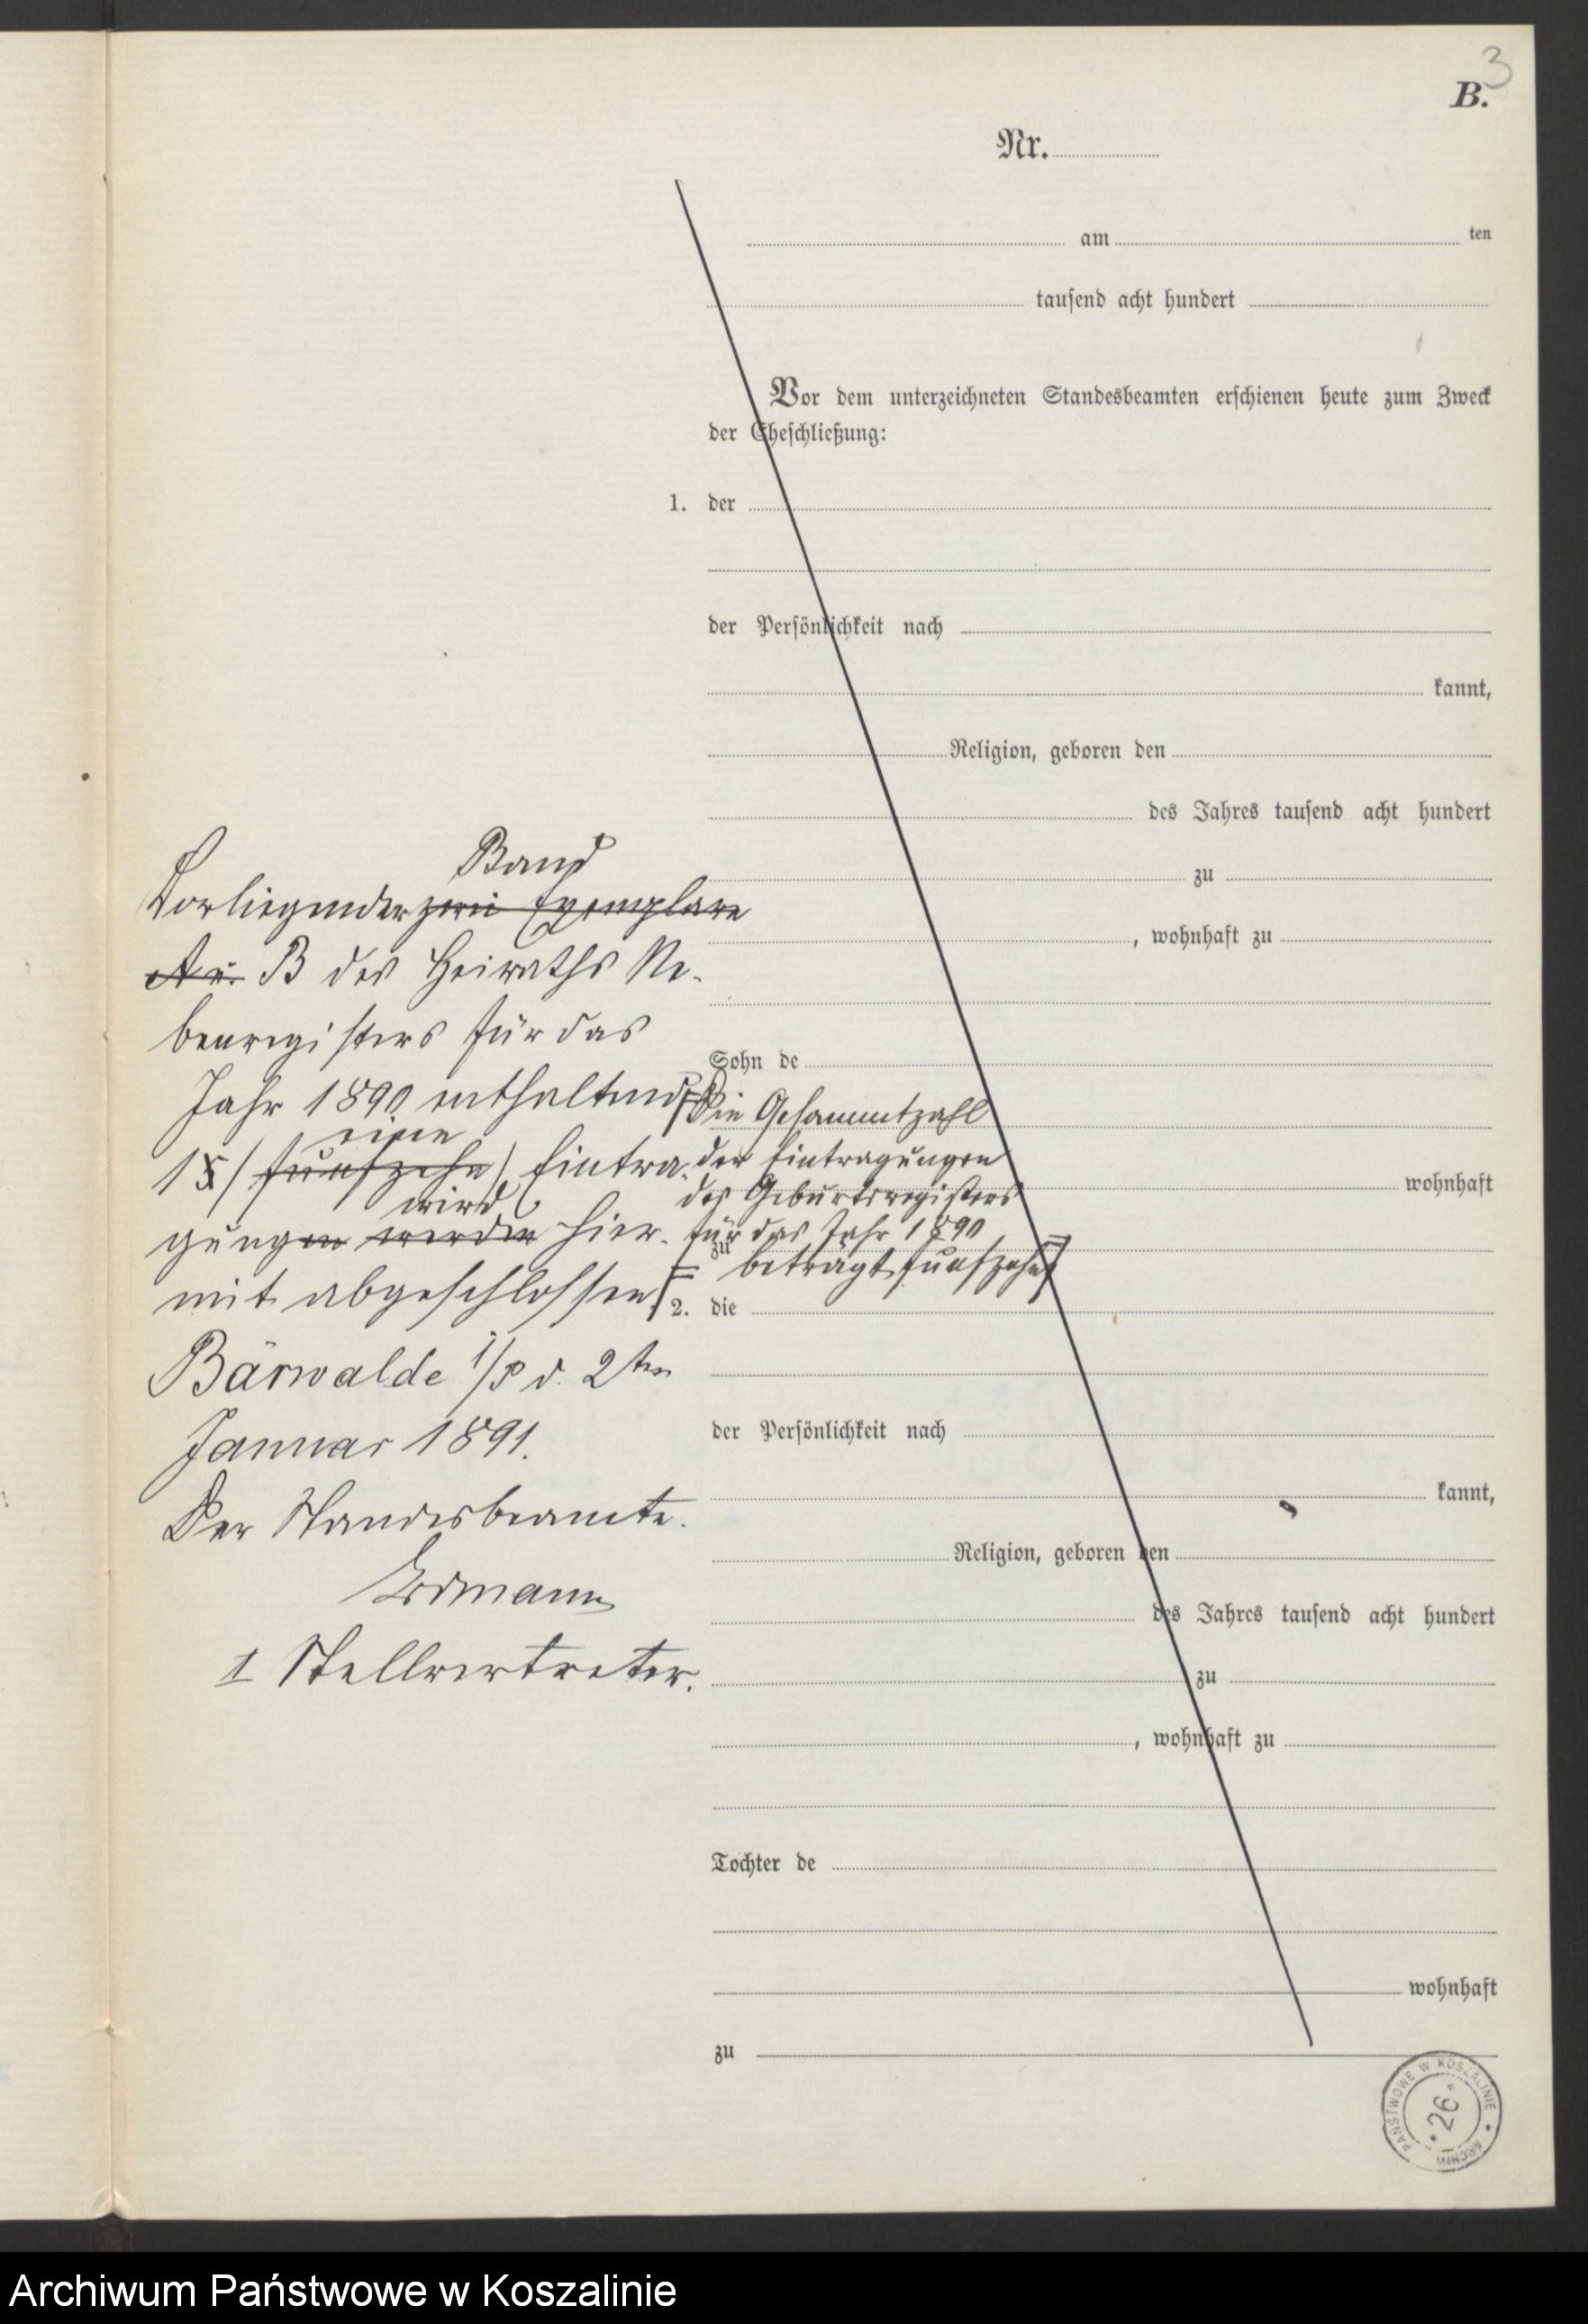 3
B.
Nr.
am ten
tausend acht hundert
Vor dem unterzeichneten Standesbeamten erschienen heute zum Zweck
der Eheschließung:
1. der
der Persönlichkeit nach
kannt,
Religion, geboren den
des Jahres tausend acht hundert
zu
, wohnhaft zu
Sohn de
wohnhaft
zu
2. die
der Persönlichkeit nach
kannt,
Religion, geboren den
des Jahres tausend acht hundert
zu
, wohnhaft zu
Tochter de
wohnhaft
zu
Band
Vorliegender zwei Exemplare
A u. B des Heiraths Ne-
benregisters für das
Jahr 1890 enthaltend
eine
1 (fünfzehn) Eintra-
wird
gungen werden hier-
mit abgeschlossen
Bärwalde i/P d. 2ten
Januar 1891.
Der Standesbeamte.
Erdmann
1 Stellvertreter.
Die Gesammtzahl
der Eintragungen
des Geburtsregisters
für das Jahr 1890
beträgt fünfzehn
PAŃSTWOWE W KOSZALINIE • ARCHIW
26
Archiwum Państwowe w Koszalinie